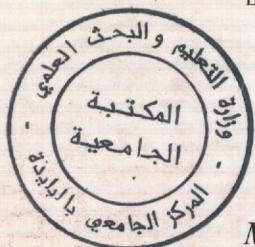 وزارة التعليم و البحث العلمي
المكتبة
الجامعية
المركز الجامعي بالبليدة